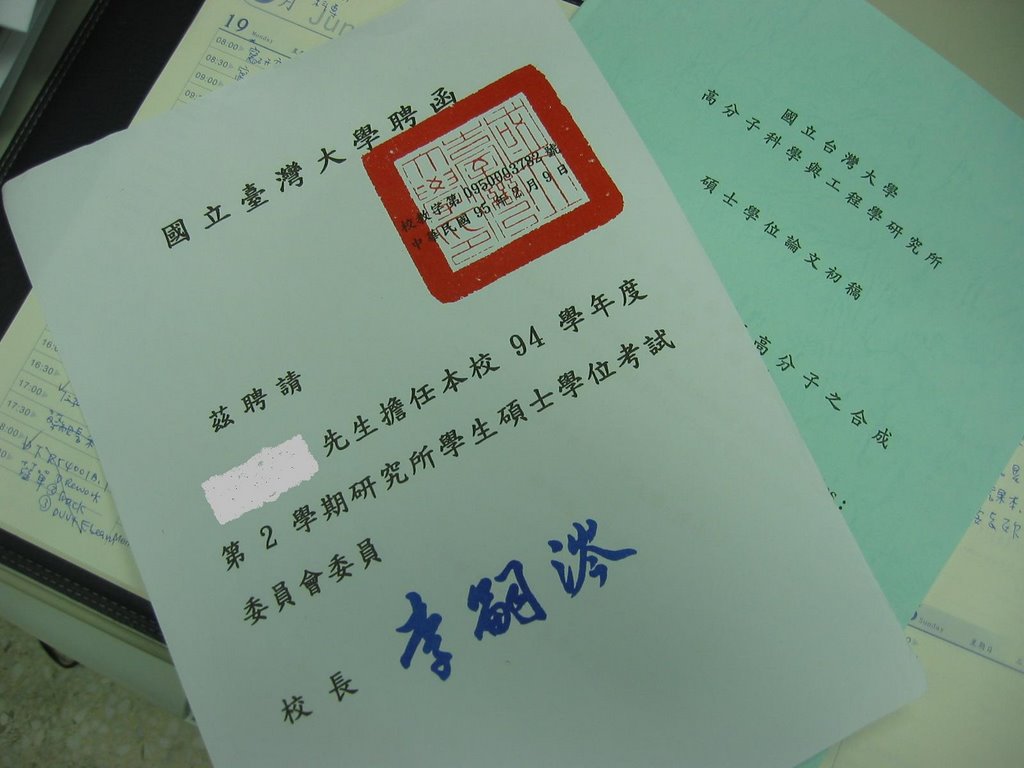 國立臺灣大學聘函
校教學第0950003782號
中華民國95年2月9日
茲聘請
先生擔任本校 94 學年度
第 2 學期研究所學生碩士學位考試
委員會委員
校長
李嗣涔
國立台灣大學
高分子科學與工程學研究所
碩士學位論文初稿
高分子之合成
19 Monday
08:00
08:30
09:00
16:30
17:00
17:30
Rework
Sunday
星期日